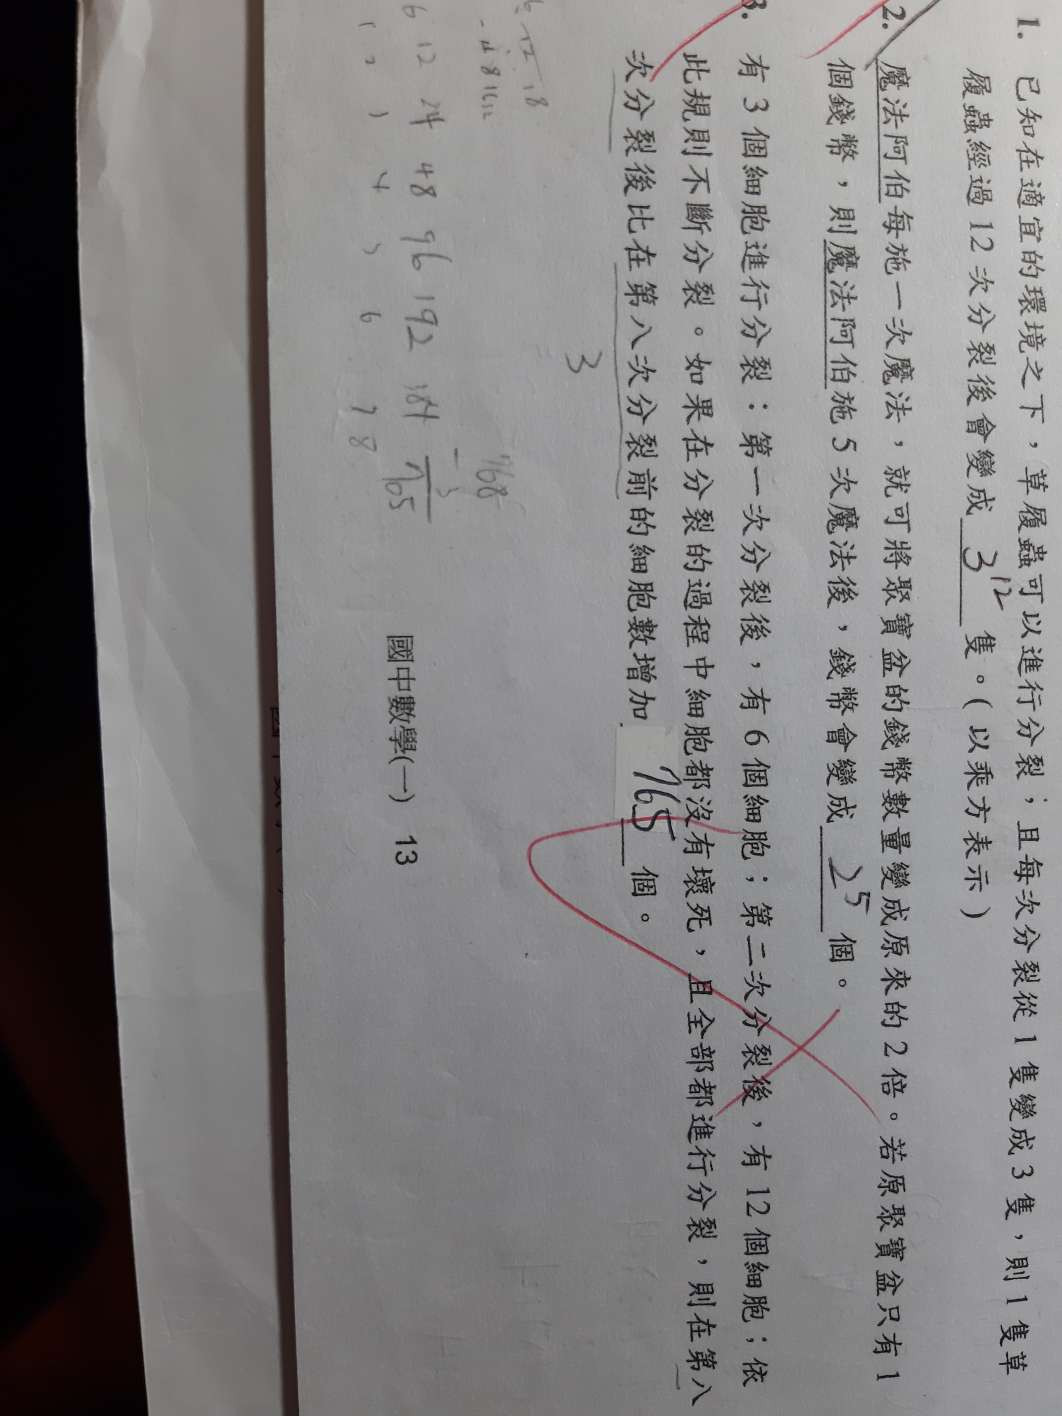 1. 已知在適宜的環境之下，草履蟲可以進行分裂，且每次分裂從1隻變成3隻，則1隻草
履蟲經過12次分裂後會變成 3^12 隻。(以乘方表示)
2. 魔法阿伯每施一次魔法，就可將聚寶盆的錢幣數量變成原來的2倍。若原聚寶盆只有1
個錢幣，則魔法阿伯施5次魔法後，錢幣會變成 2^5 個。
3. 有3個細胞進行分裂：第一次分裂後，有6個細胞；第二次分裂後，有12個細胞；依
此規則不斷分裂。如果在分裂的過程中細胞都沒有壞死，且全部都進行分裂，則在第八
次分裂後比在第八次分裂前的細胞數增加 765 個。
3
768
- 3
765
6 12 24 48 96 192 384
國中數學(一) 13